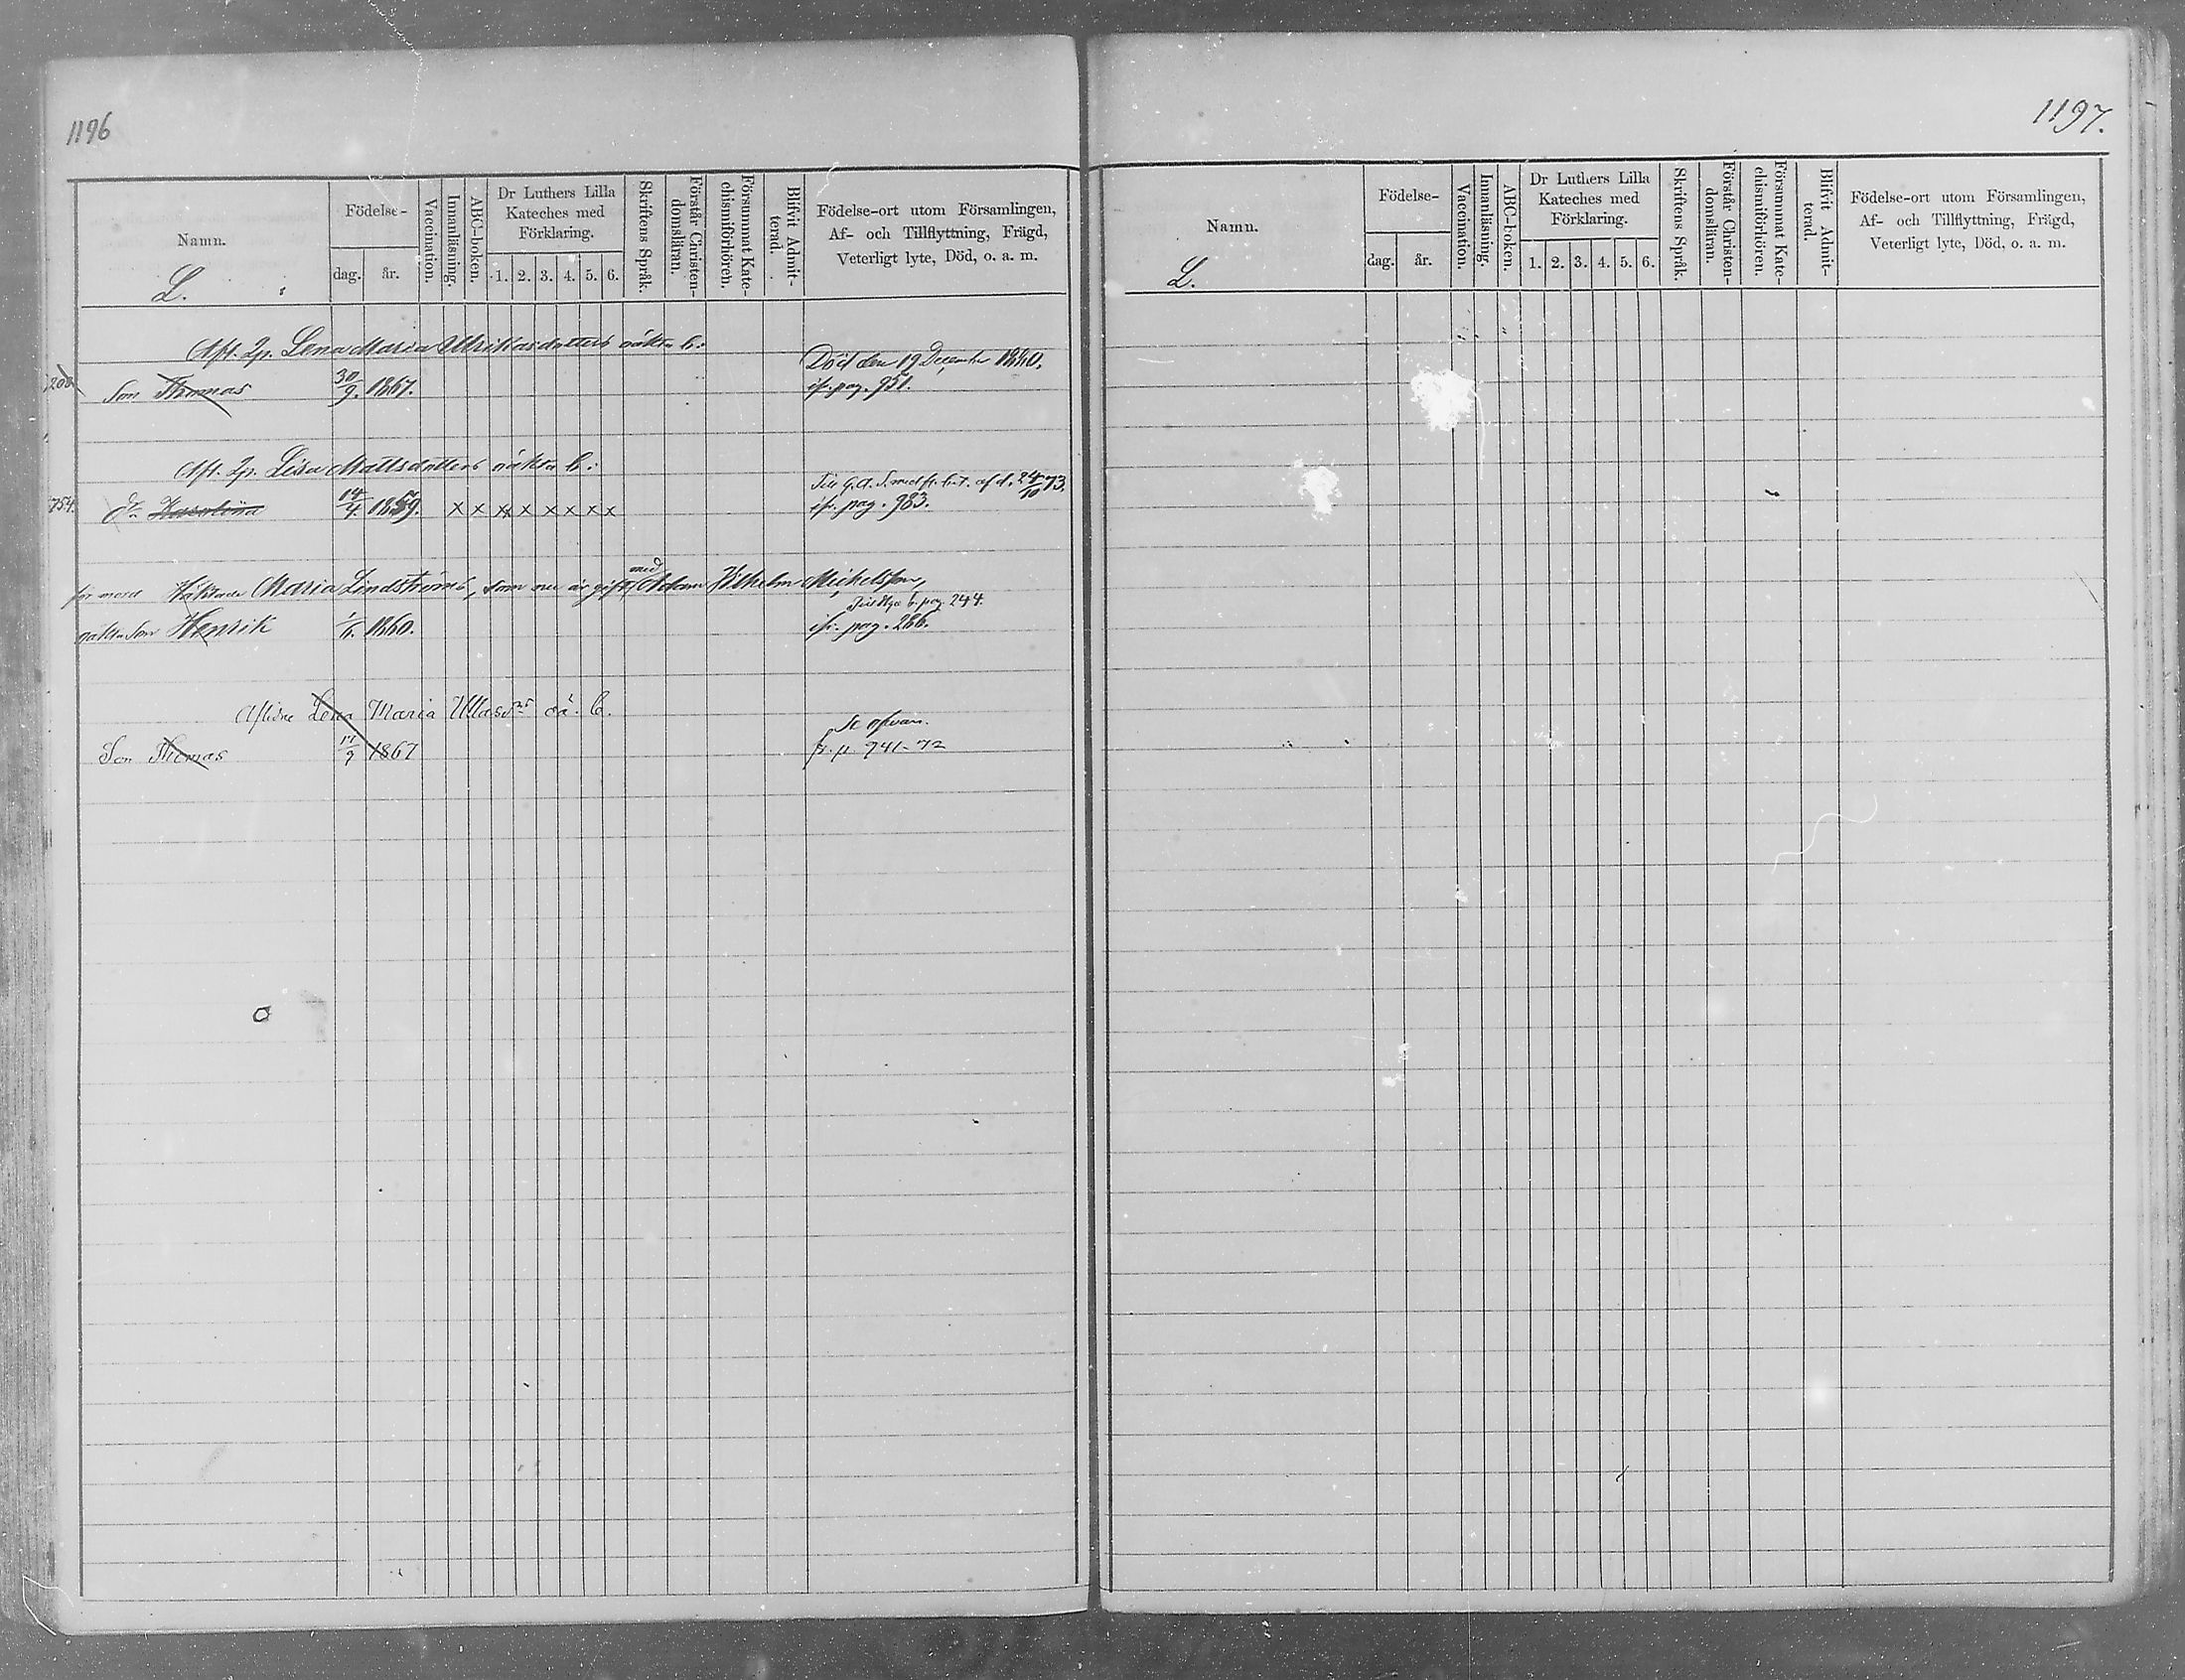 1196
Namn.
L.
Födelse-
dag.
år.
Vaccination.
Innanläsning.
ABC-boken.
Dr Luthers Lilla
Kateches med
Förklaring.
1. 2. 3. 4. 5. 6.
Skriftens Språk.
Förstår Christen-
domsläran.
Försummat Kate-
chismiförhören.
Blifvit Admit-
terad.
Födelse-ort utom Församlingen,
Af- och Tillflyttning, Frägd,
Veterligt lyte, Död, o. a. m.
Afl. Lena Maria Ulrikasdotters oäkta b:
Död den 19 December
Son Thomas 30/9. 1867. pag. 951.
Afl. Lisa Mattsdotters oäkta b:
754. 14/4. 1859. x x x x x x x x pag. 983.
Maria Lindströms, som nu är gift med Adam Vilhelm Michelsson,
b. pag. 244.
oäkta son Henrik 1860. pag. 266.
Aflidne Lena Maria Ullasdrs oä. b.
Se ofvan.
Son Thomas 17/9 1867 p. 941-72
1197.
Namn.
L.
Födelse-
dag.
år.
Vaccination.
Innanläsning.
ABC-boken.
Dr Luthers Lilla
Kateches med
Förklaring.
1. 2. 3. 4. 5. 6.
Skriftens Språk.
Förstår Christen-
domsläran.
Försummat Kate-
chismiförhören.
Blifvit Admit-
terad.
Födelse-ort utom Församlingen,
Af- och Tillflyttning, Frägd,
Veterligt lyte, Död, o. a. m.